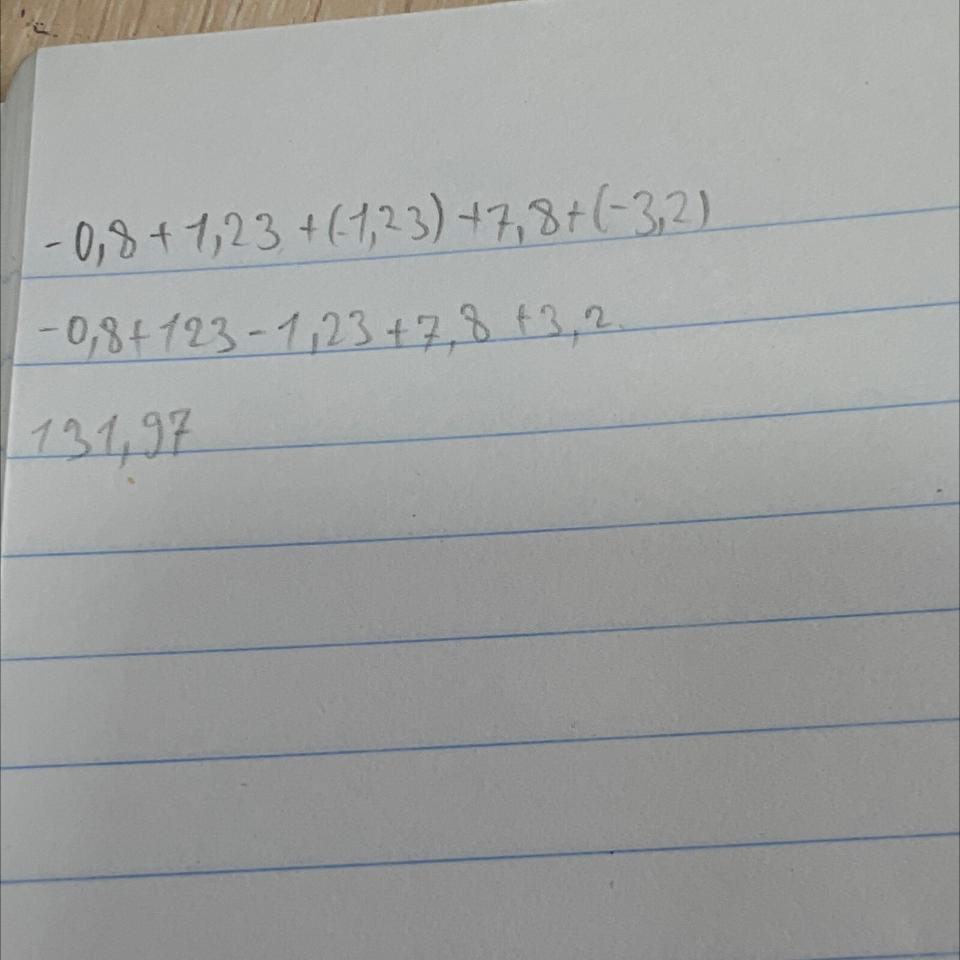 -0,8+1,23+(-1,23)+7,8+(-3,2)
-0,8+123-1,23+7,8+3,2
131,97